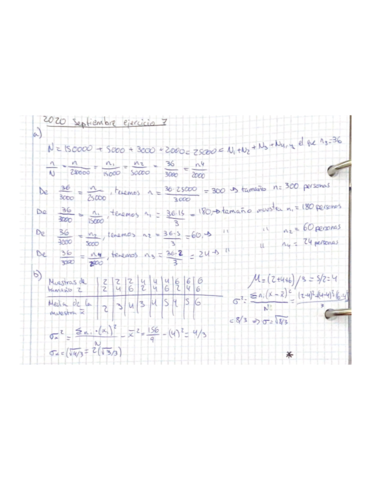 2020 Septiembre ejercicio 7
a)
N = 150000 + 5000 + 3000 + 2000 = 25000 = N1 + N2 + N3 + N4 n3=36
n/N = n/25000 = n1/15000 = n2/5000 = 36/3000 = n4/2000
De 36/3000 = n/25000, tenemos n = 36·25000/3000 = 300 → tamaño n = 300 personas
De 36/3000 = n1/15000, tenemos n1 = 36·15/3 = 180 → tamaño muestra n1 = 180 personas
De 36/3000 = n2/5000, tenemos n2 = 36·5/3 = 60 → " " n2 = 60 personas
De 36/3000 = n4/2000, tenemos = 36·2/3 = 24 → " " n4 = 24 personas
b) Muestras de tamaño 2 | 2 2 | 2 4 | 2 6 | 4 2 | 4 4 | 4 6 | 6 2 | 6 4 | 6 6
Media de la muestra | 2 | 3 | 4 | 3 | 4 | 5 | 4 | 5 | 6
μ = (2+4+6)/3 =
= 8/3 ⇒ σ = √8/3
= 156/9 - (4)² = 4/3
*